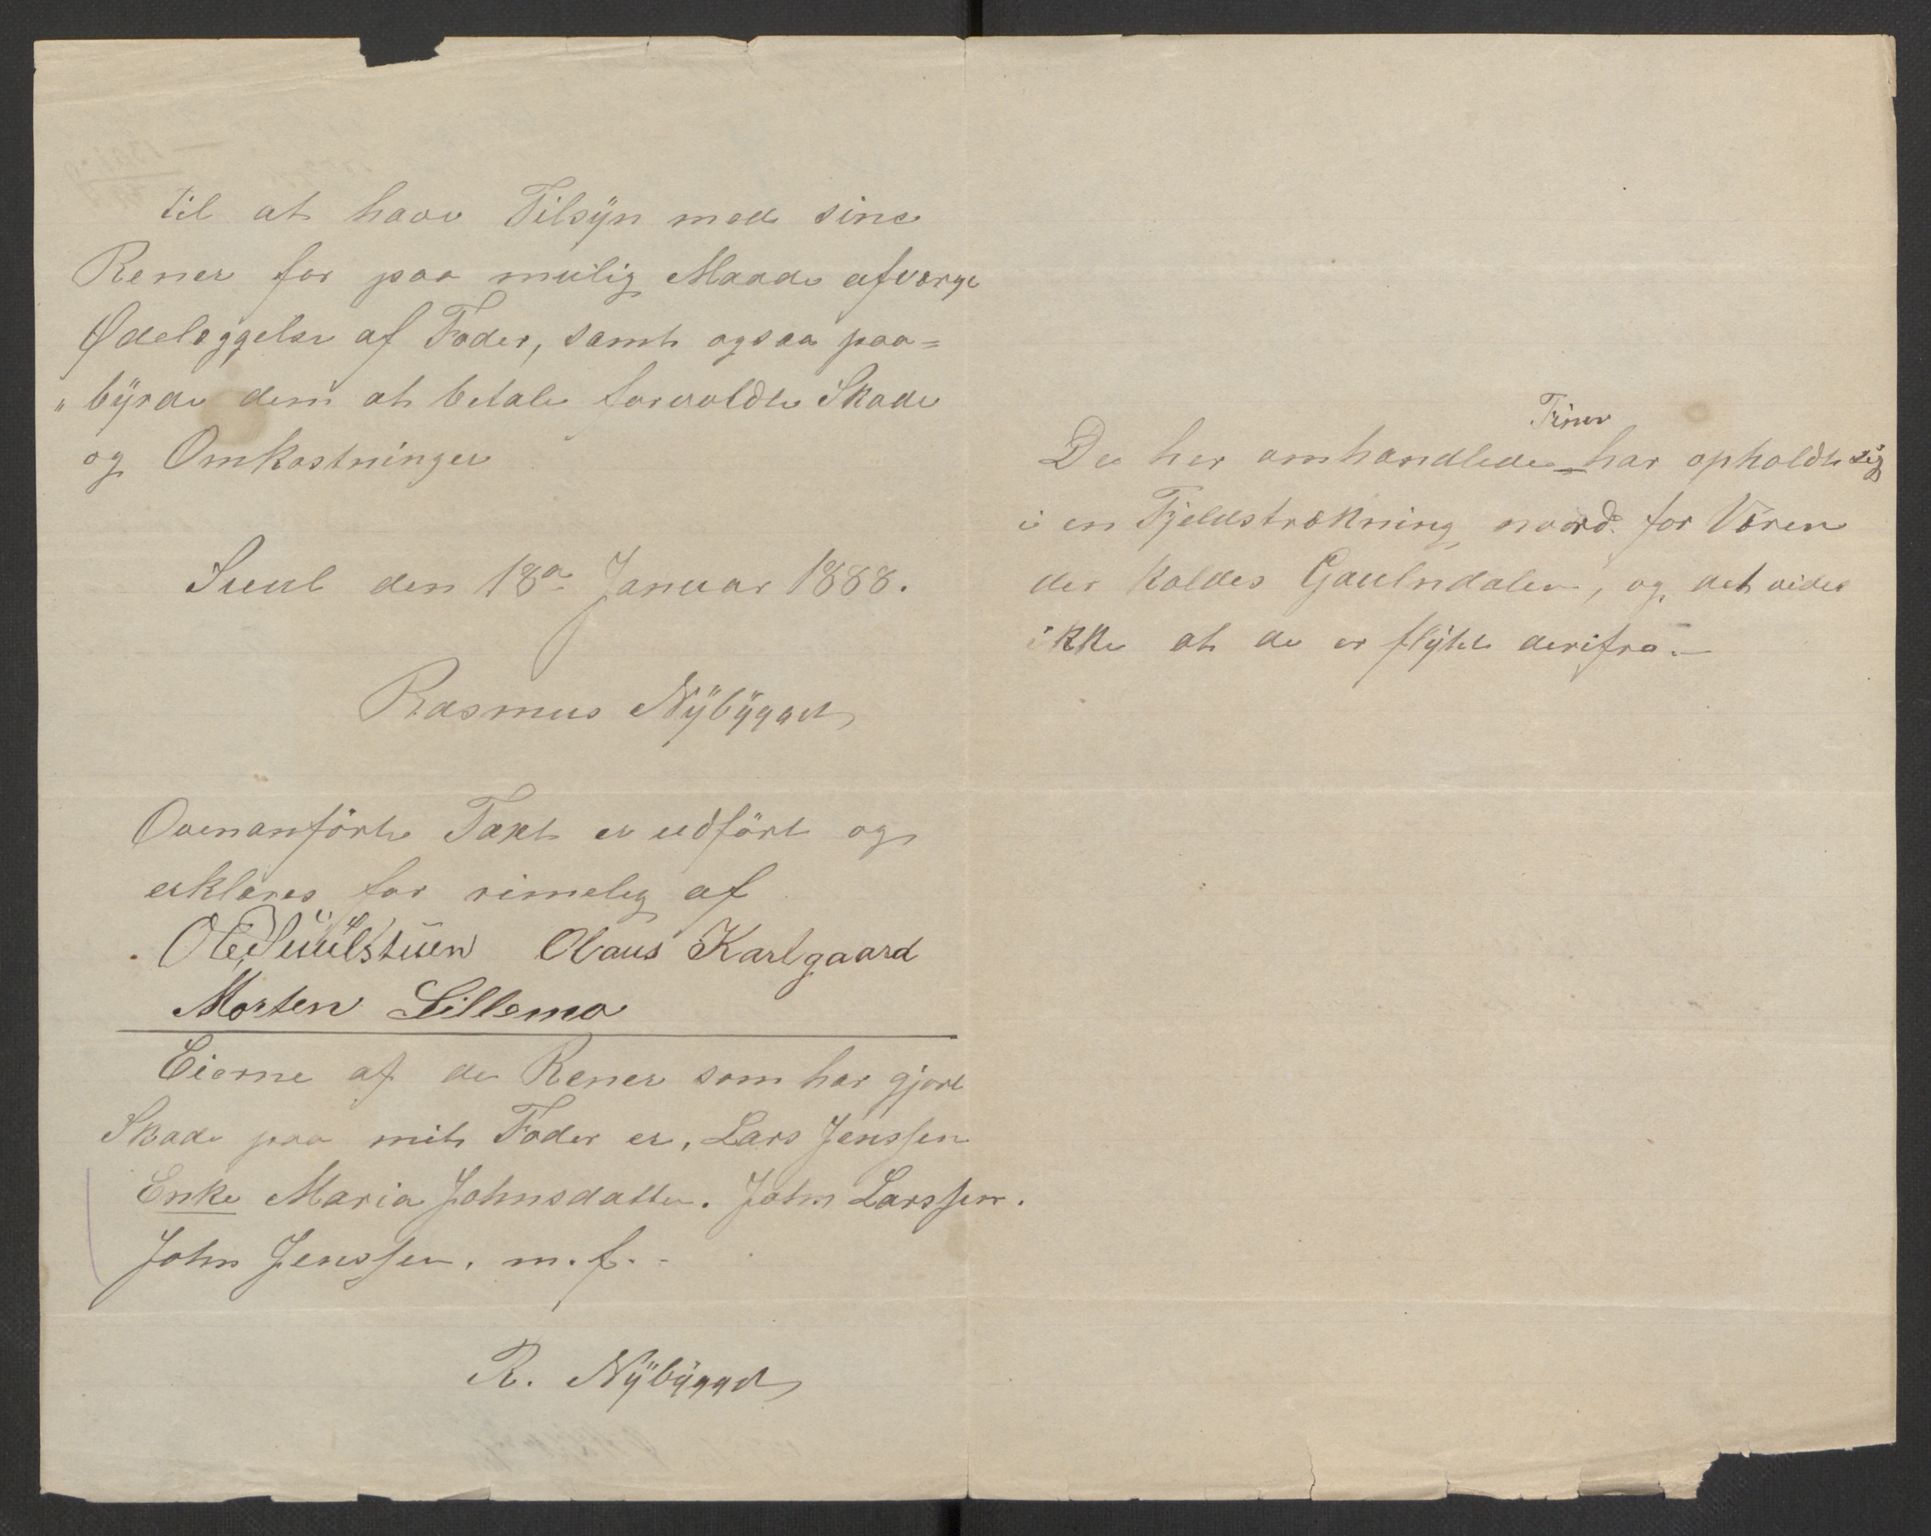 til at have Tilsÿn med sine
Rener for paa mulig Maade afværge
Ødelæggelse af Foder, samt ogsaa paa=
"bÿrde dem at betale forvoldte Skade
og Omkostninger
Suul den 18de Januar 1888.
Rasmus Nÿbÿgget
Ovenanförte Taxt er udfört og
erklæres for rimelig af
O. E. Suulstuen Olaus Karlgaard
Morten Lillemo
Eierne af de Rener som har gjort
Skade paa mit Foder er, Lars Jenssen
Enke Maria Johnsdatter. John Larssen.
John Jenssen, m. f.
R. Nÿbÿgget
De her omhandlede Finer har opholdt sig
i en Fjeldstrækning nord for Væren
der kaldes Gaulndalen, og det vides
ikke at de er flÿtte derifra.-